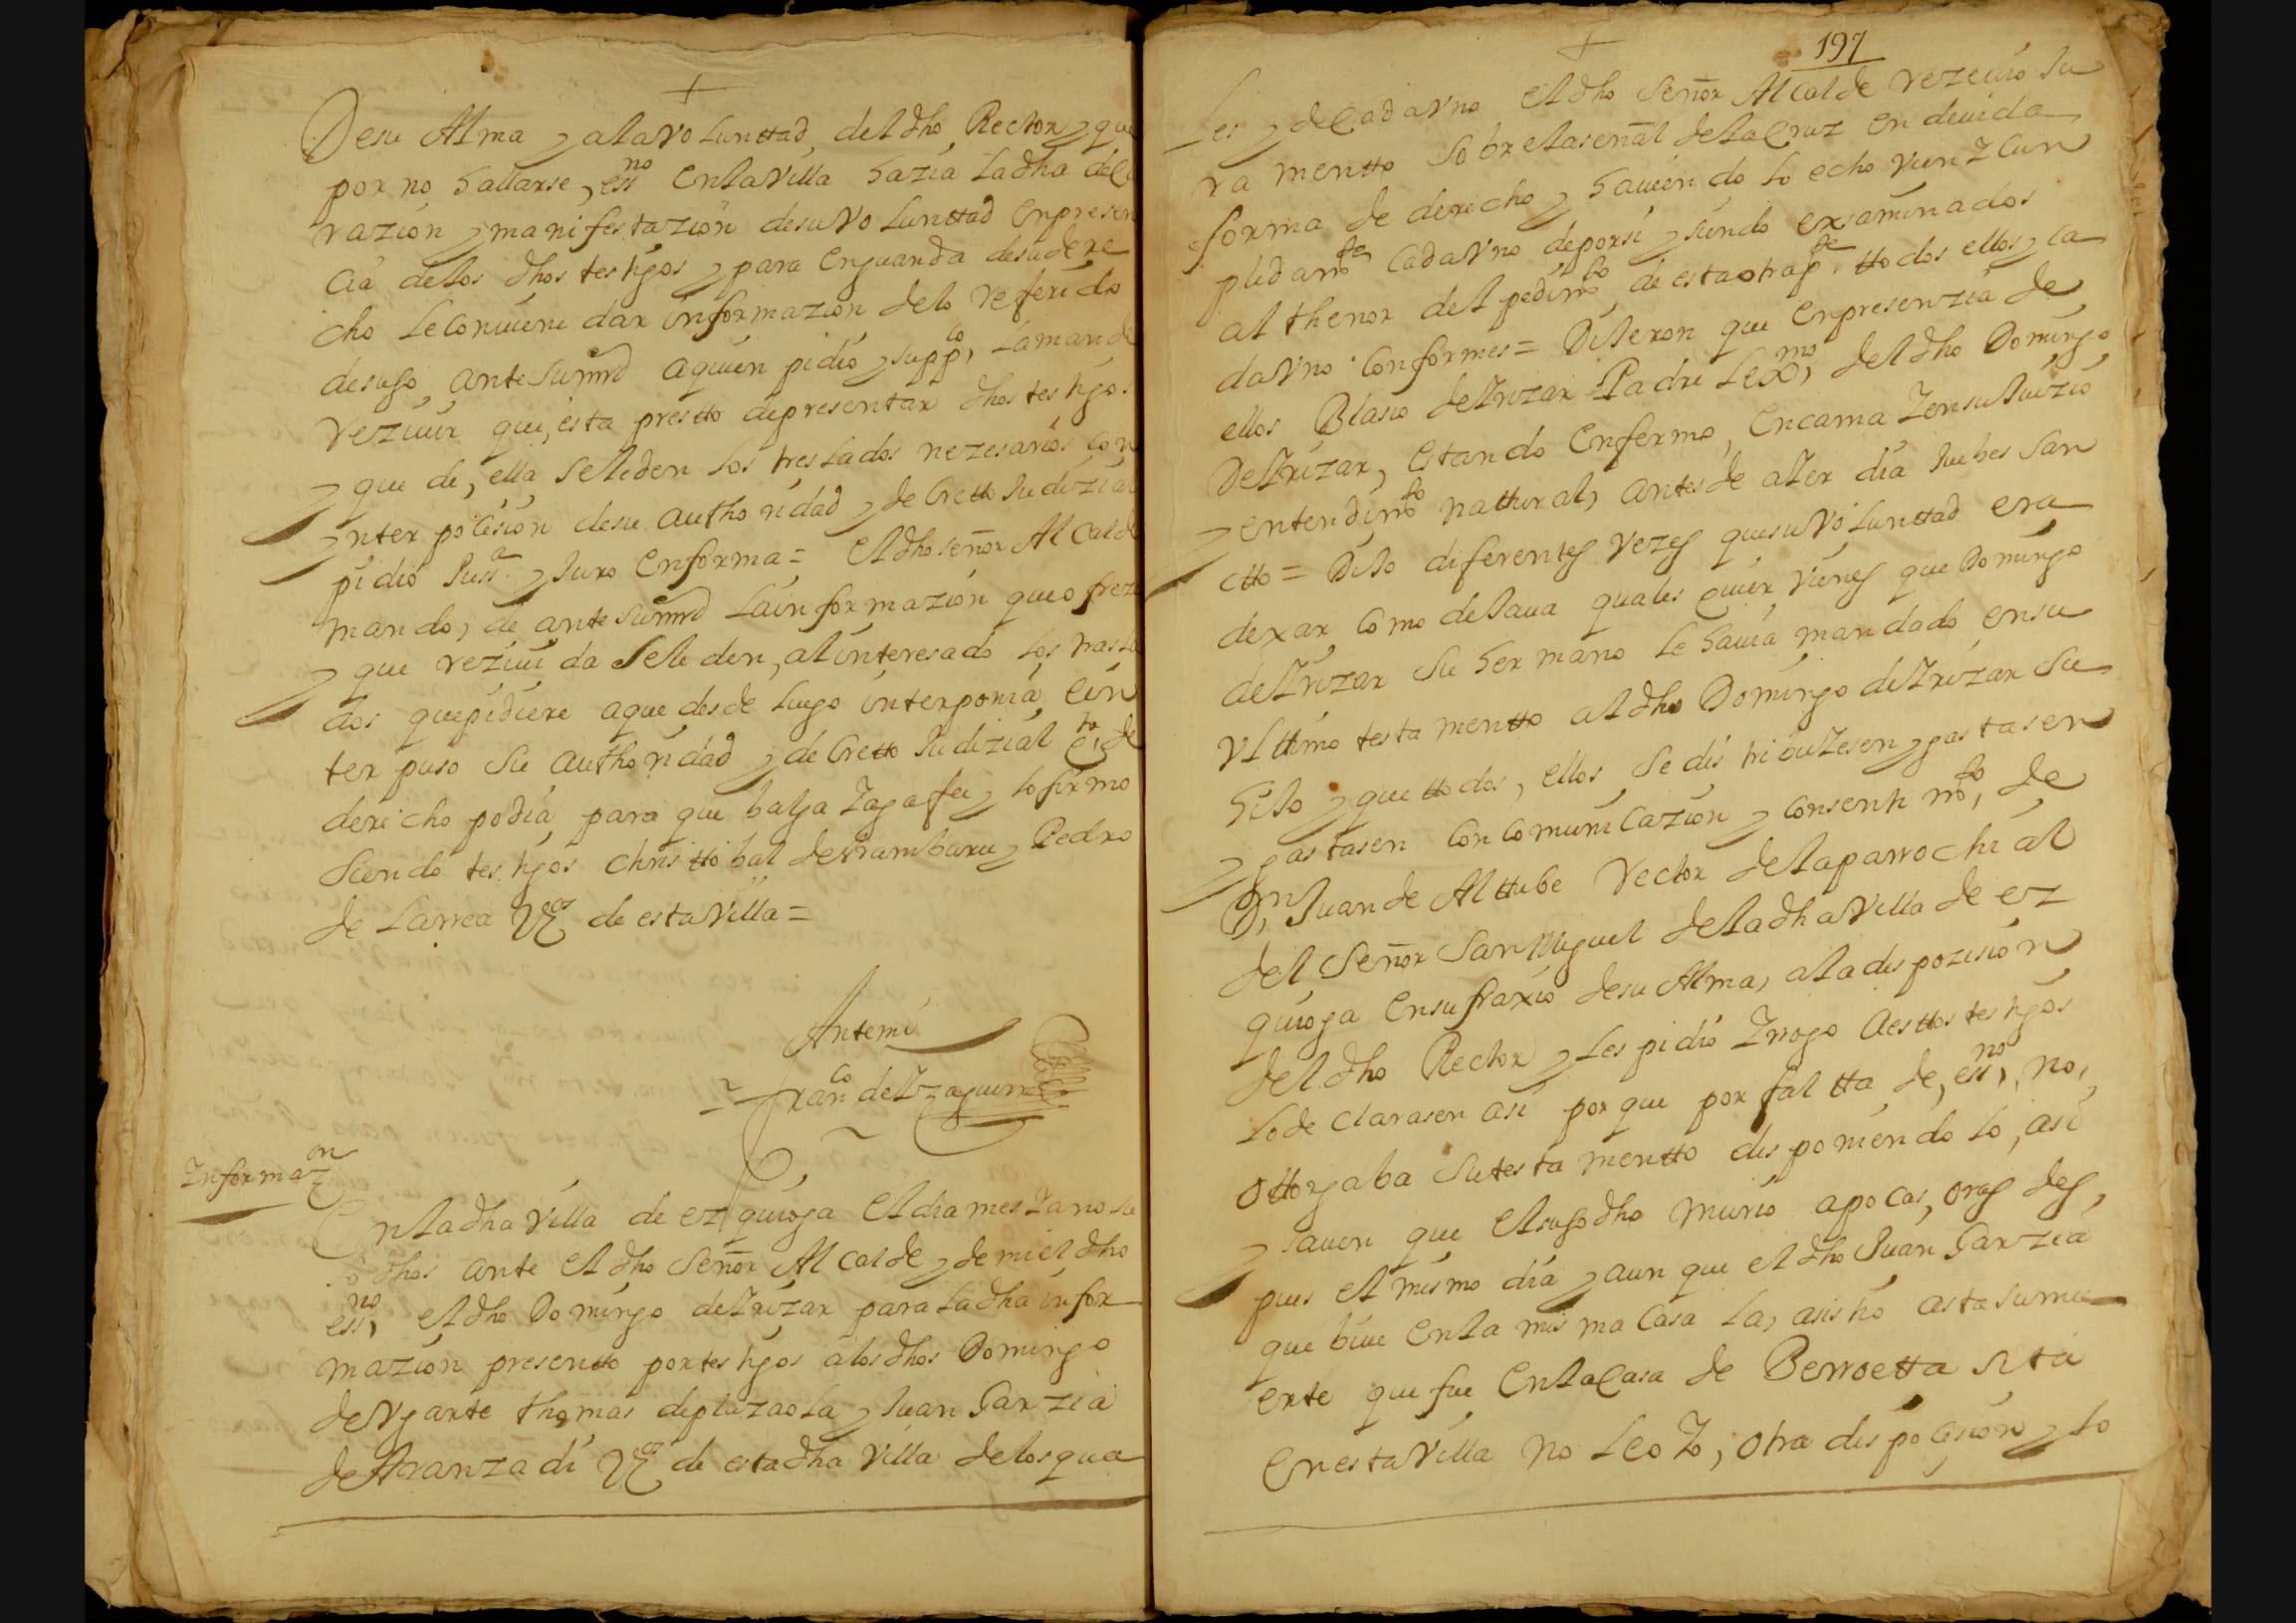 +
Desu Alma y ala voLunttad, del dho Rector y que
por no hallarse, essno en la villa hazia La dha decl
razion y manifestazion desu voLunttad en presen
cia de los dhos testigos y para en guarda desu dere
cho Le conviene dar informazion de lo referido
de suso, ante su mrd a quien pidio y suppco, La mande
rezivir que, esta prestto de presentar dhos testigos
y que de, ella se le den Los tresLados nezesarios con
ynterposision de su authoridad y decretto Judizial
pidio Jussa y Juro en forma = el dho señor Alcalde
mando, de ante su mrd La informazion que ofreze
y que rezivida se le den, al interesado Los trasLa
dos que pidiere a que desde Luego interponia, e in
terpuso su authoridad y decretto Judizial qto de
derecho podia para que balga Zaga fee y Lo firmo
siendo testigos Christtobal de Aramburu y Pedro
de Larrea Vzos de esta villa =
Antemi
Franco de Yzaguirre
Informazon
En La dha villa de ezquioga el dia mes Z ano su
so dhos ante el dho señor Alcalde y de mi el dho
essno, el dho Domingo de Irizar para La dha infor
mazion presentto por testigos a los dhos Domingo
de Vgarte thomas de plazaoLa y Juan Garzia
de Aranzadi Vzos de esta dha villa de los qua
197
+
Les y de cada Vno el dho señor Alcalde rezevio Ju
ramentto sobre la señal de la Cruz en devida
forma de derecho y haviendo Lo echo vien Z cun
plidamte cada Vno de por si y siendo exsaminados
al thenor del pedimto de esta otra pte ttodos ellos y ca
da Vno conformes = DiJeron que en presenzia de
ellos Blasio de Irizar Padre Lexmo, del dho Domingo
de Irizar, estando enfermo, en cama Z en su Juizio
y entendimto natural, antes de aZer dia Juebes san
ctto = DiJo diferentes vezes que su voLunttad era
dexar como deJava quales quier vienes que Domingo
de Irizar su hermano Le havia mandado en su
vLttimo testamentto al dho Domingo de Irizar su
hiJo y que ttodos, ellos se distribuZesen y gastasen
y gastasen con comunicazion y consentimto, de
Dn Juan de Alttube Rector de la parrochial
del señor San Miguel de la dha villa de ez
quioga en sufraxio de su Alma, a la dispozision
del dho Rector y Les pidio Z rrogo a esttos testigos
Lo declarasen asi porque por faltta de, essno, no,
ottorgaba su testamentto disponiendo Lo, asi
y saven que el suso dho murio a pocas, oras des,
pues el mismo dia y aunque el dho Juan Garzia
que bive en La misma casa La, asistio asta su mu
erte que fue en La casa de Berroetta sita
en esta villa no Le oZo, otra disposision y Lo